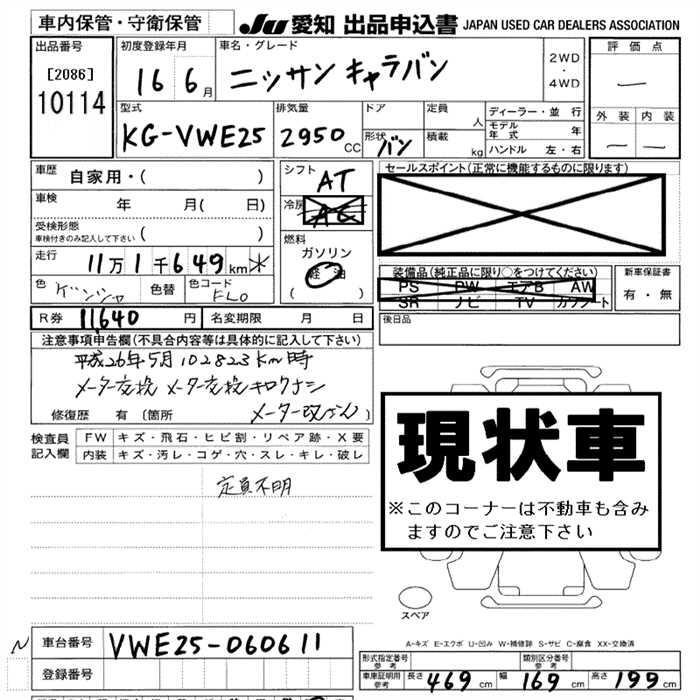 車内保管・守衛保管
JU 愛知 出品申込書 JAPAN USED CAR DEALERS ASSOCIATION
出品番号
[2086]
10114
初度登録年月
16 6月
車名・グレード
ニッサン キャラバン
2WD
・
4WD
評価点
一
外装 内装
一 一
型式
KG-VWE25
排気量
2950CC
ドア
形状 バン
定員 人
積載 kg
ディーラー・並行
モデル年式 年
ハンドル 左・右
車歴 自家用・( )
車検 年 月( 日)
受検形態
車検付きのみ記入して下さい ( )
走行 11万1千649km*
色 ゲンシャ 色替 色コード KL0
シフト AT
冷房 AC
燃料
ガソリン
軽油
( )
セールスポイント(正常に機能するものに限ります)
装備品(純正品に限り○をつけてください)
PS PW エアB AW
SR ナビ TV カワシート
新車保証書
有・無
後日品
R券 11,640円 名変期限 月 日
注意事項申告欄(不具合内容等は具体的に記入して下さい)
平成26年5月102823Km時
メーター交換 メーター交換キロクナシ
修復歴 有 [箇所 メーター改ざん]
検査員記入欄
FW キズ・飛石・ヒビ割・リペア跡・X要
内装 キズ・汚レ・コゲ・穴・スレ・キレ・破レ
定員不明
現状車
※このコーナーは不動車も含み
ますのでご注意下さい
スペア
A-キズ E-エクボ U-凹み W-補修跡 S-サビ C-腐食 XX-交換済
N 車台番号 VWE25-060611
登録番号
形式指定番号 参考
類別区分番号 参考
車庫証明用 参考 長さ 469cm 幅 169cm 高さ 199cm